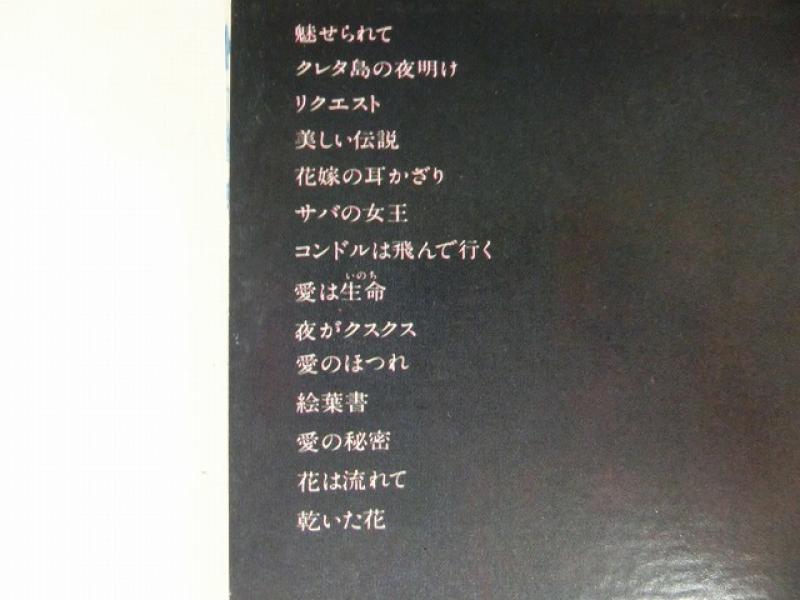 魅せられて
クレタ島の夜明け
リクエスト
美しい伝説
花嫁の耳かざり
サバの女王
コンドルは飛んで行く
いのち
愛は生命
夜がクスクス
愛のほつれ
絵葉書
愛の秘密
花は流れて
乾いた花